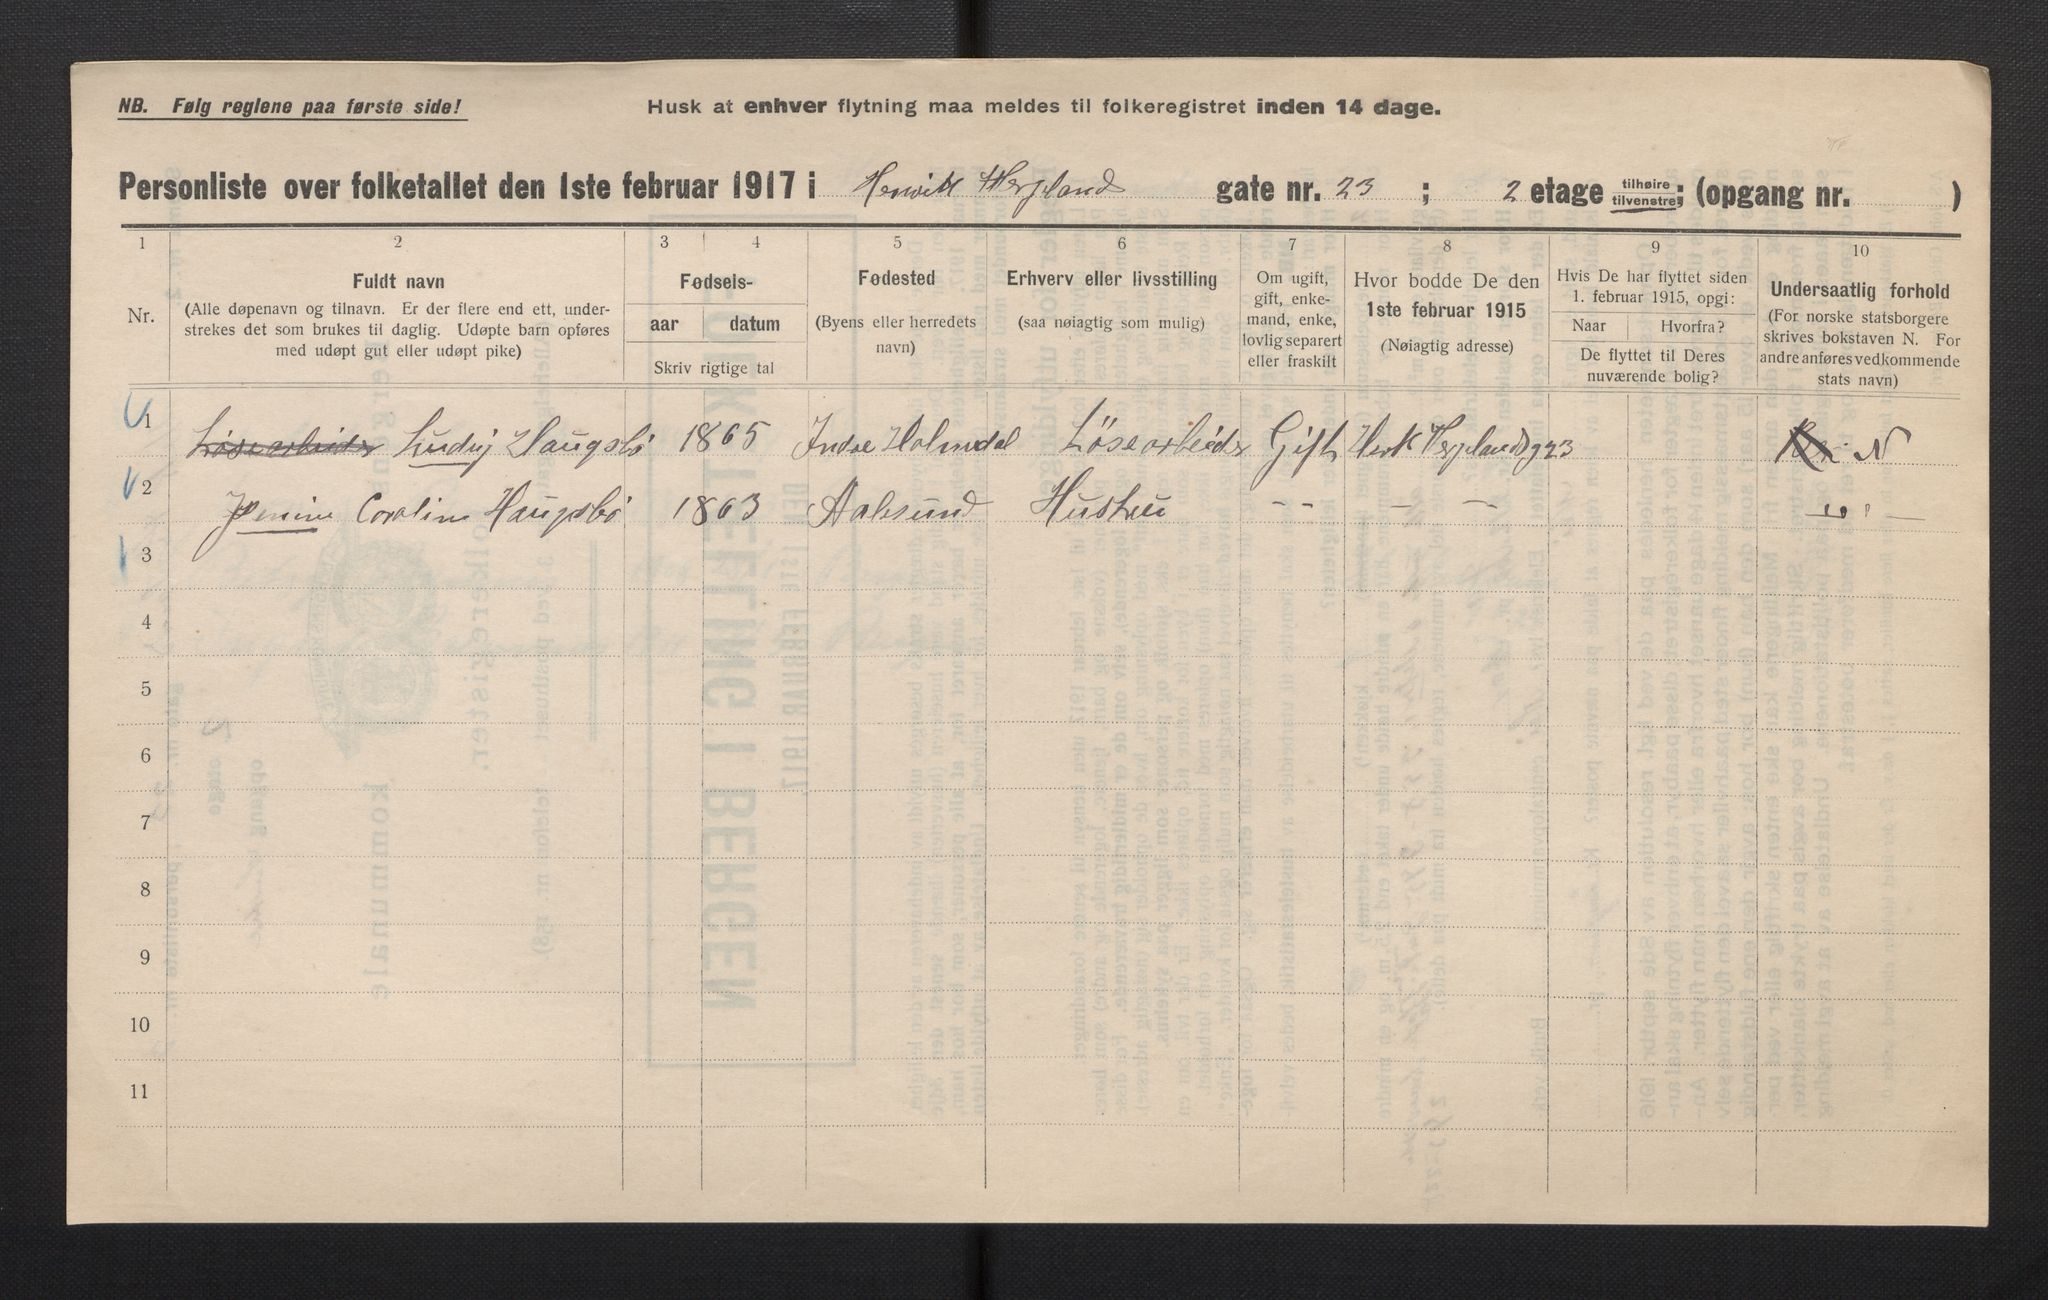 NB. Følg reglene paa første side!
Husk at enhver flytning maa meldes til folkeregistret inden 14 dage.
Personliste over folketallet den 1ste februar 1917 i Henrik Wergland gate nr. 23 ; 2 etage tilhøire tilvenstre; (opgang nr. )
1 2 3 4 5 6 7 8 9 10
Nr.
Fuldt navn
(Alle døpenavn og tilnavn. Er der flere end ett, under-
strekes det som brukes til daglig. Udøpte barn opføres
med udøpt gut eller udøpt pike)
Fødsels-
aar datum
Skriv rigtige tal
Fødested
(Byens eller herredets
navn)
Erhverv eller livsstilling
(saa nøiagtig som mulig)
Om ugift,
gift, enke-
mand, enke,
lovlig separert
eller fraskilt
Hvor bodde De den
1ste februar 1915
(Nøiagtig adresse)
Hvis De har flyttet siden
1. februar 1915, opgi:
Naar Hvorfra?
De flyttet til Deres
nuværende bolig?
Undersaatlig forhold
(For norske statsborgere
skrives bokstaven N. For
andre anføres vedkommende
stats navn)
1 Løsearbeider Ludvig Haugsbö 1865 Indre Holmdal Lösearbeider Gift Herk Wergland g 23 N
2 Caroline Haugsbö 1863 Aalesund Hustru - - - - - " -
3
4
5
6
7
8
9
10
11